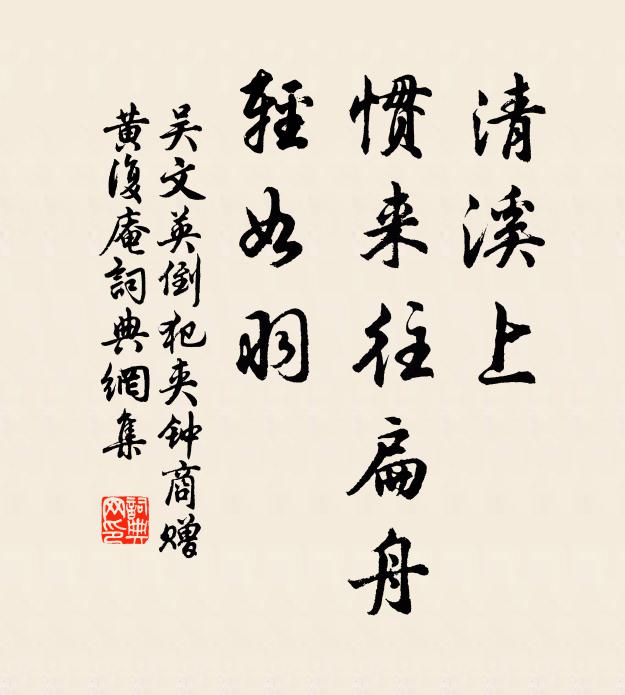 清溪上
惯来往扁舟
輕如羽
吴文英倒犯夹钟商赠
黄復庵詞典網集
詞典网印